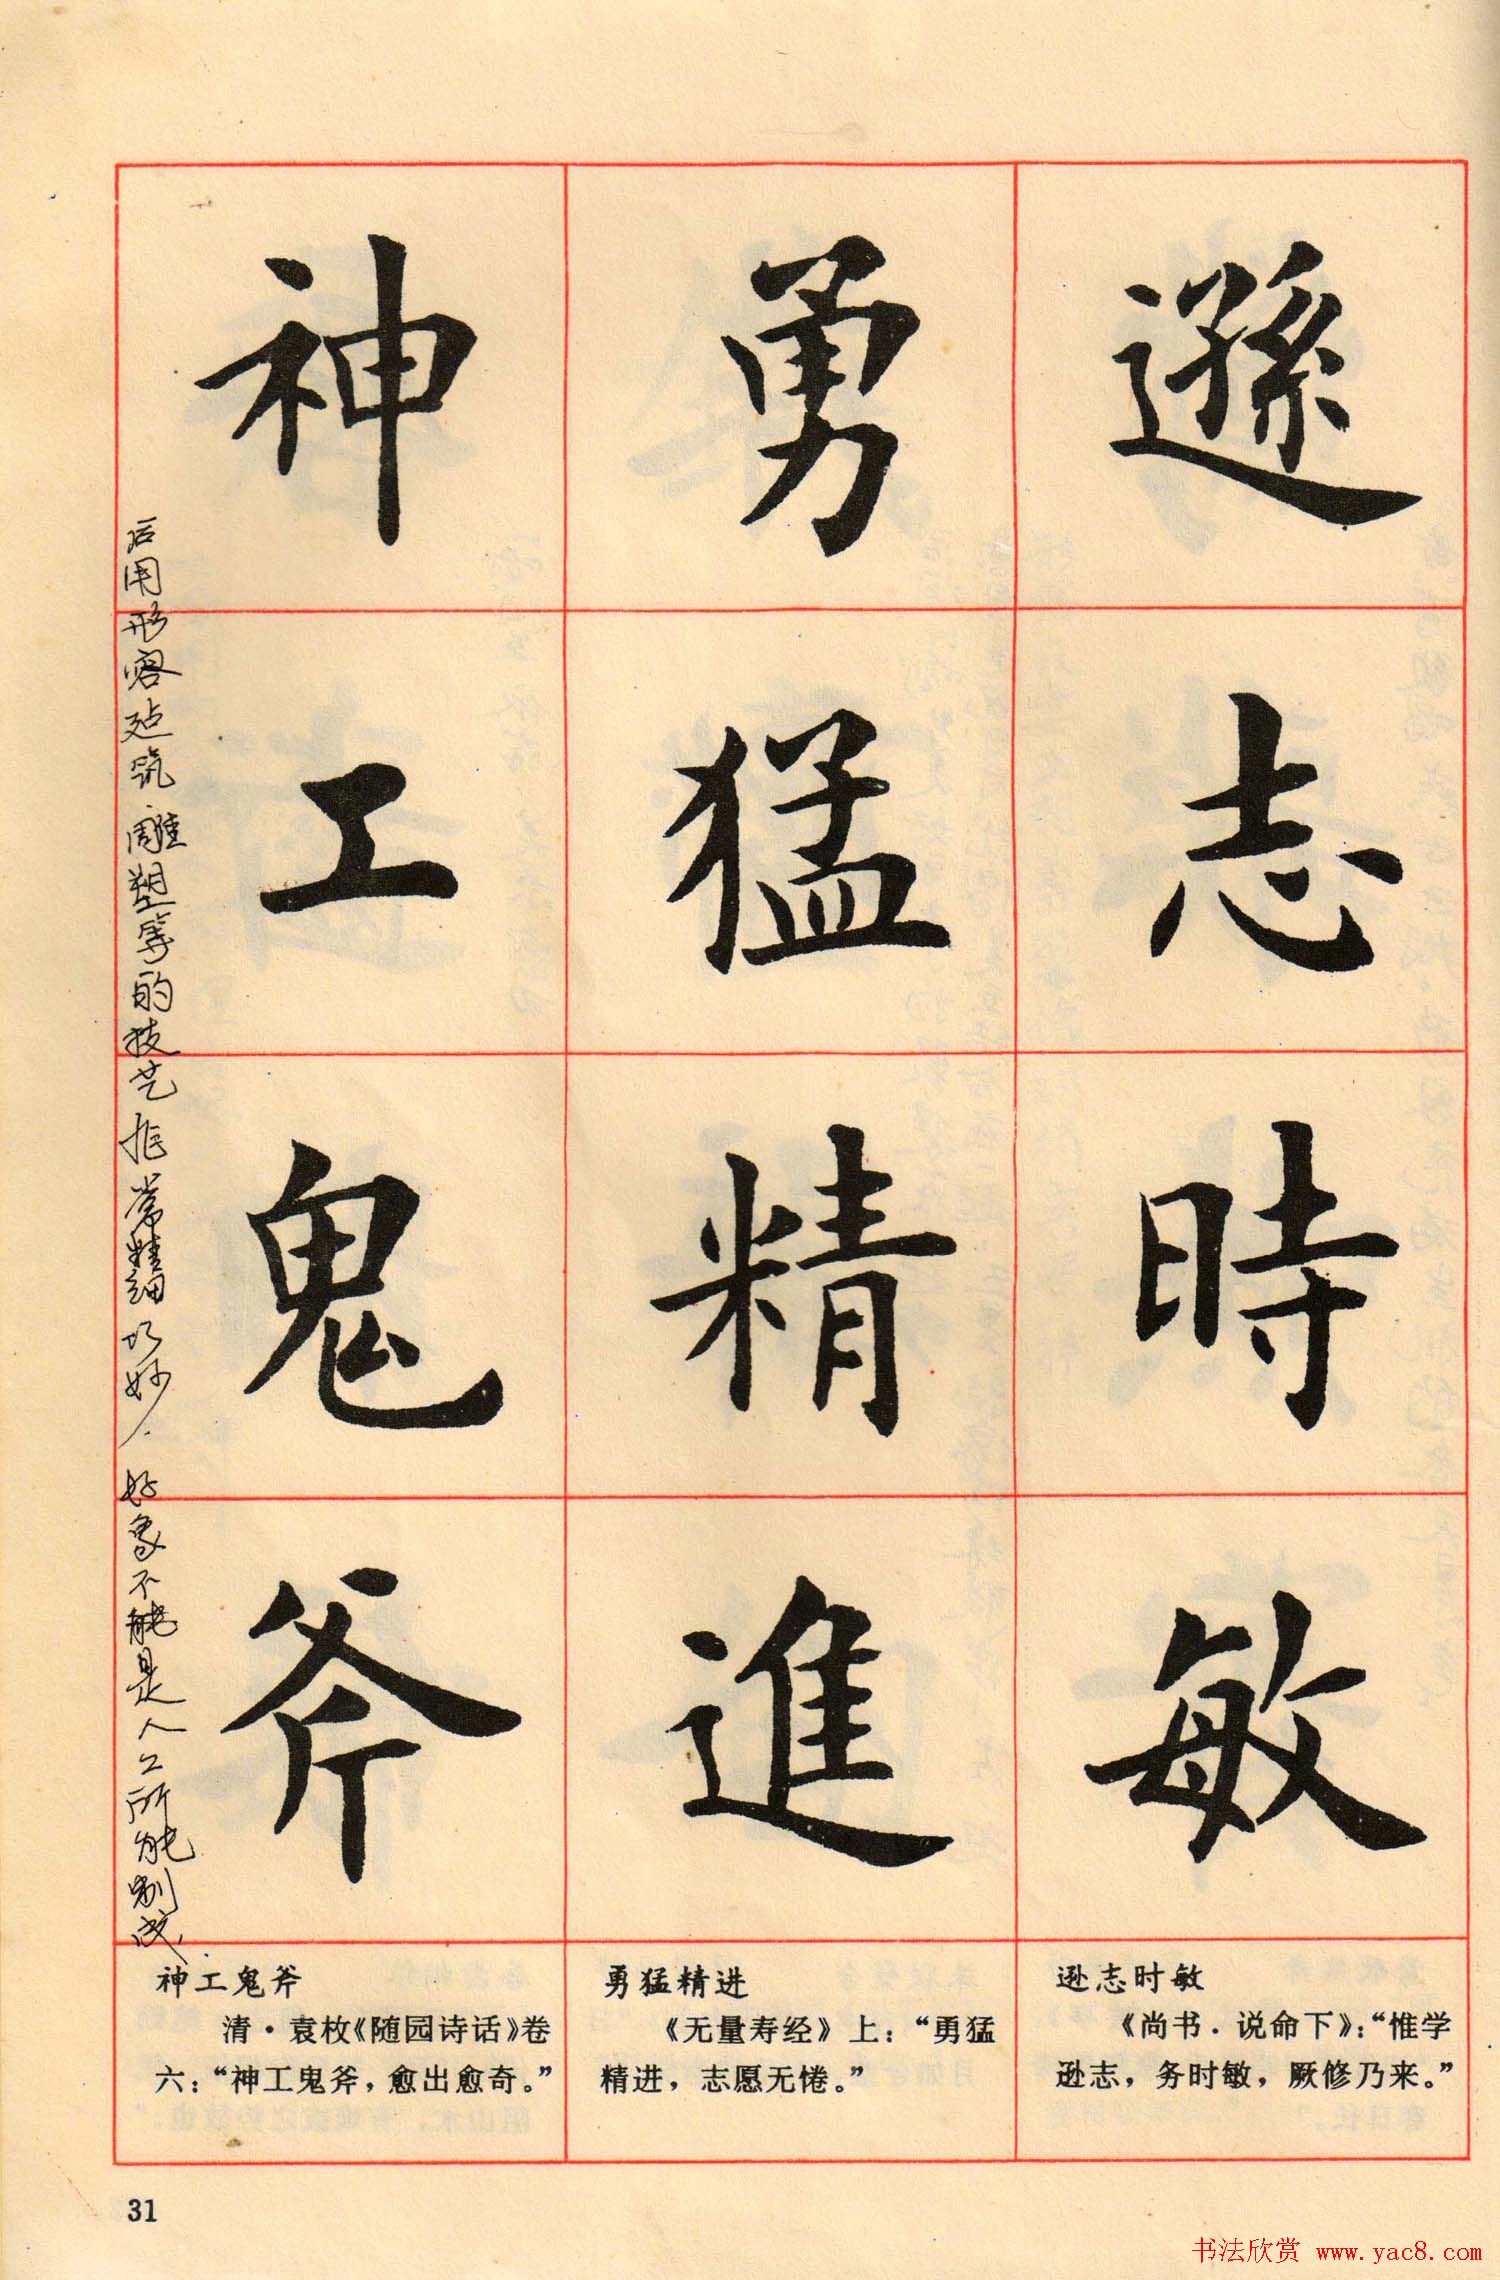 遜志時敏
勇猛精進
神工鬼斧
后用形容建筑雕塑等的技艺非常精细巧妙，好象不能是人工所能制成
逊志时敏
《尚书·说命下》：“惟学
逊志，务时敏，厥修乃来。”
勇猛精进
《无量寿经》上：“勇猛
精进，志愿无惓。”
神工鬼斧
清·袁枚《随园诗话》卷
六：“神工鬼斧，愈出愈奇。”
31
书法欣赏 www.yac8.com